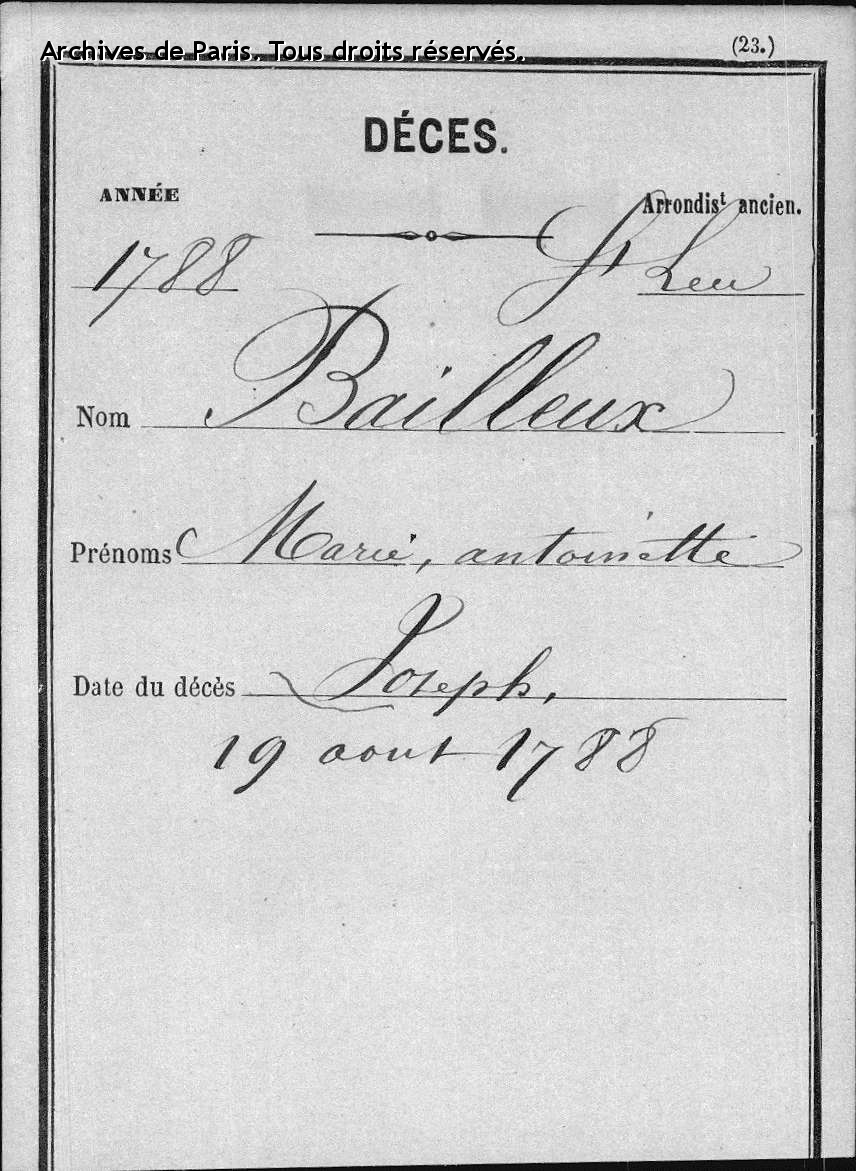 Archives de Paris. Tous droits réservés.
(23.)
DÉCES.
ANNÉE
Arrondisᵗ ancien.
1788
St Leu
Nom Bailleux
Prénoms Marie, antoinette
Joseph,
Date du décès
19 aout 1788